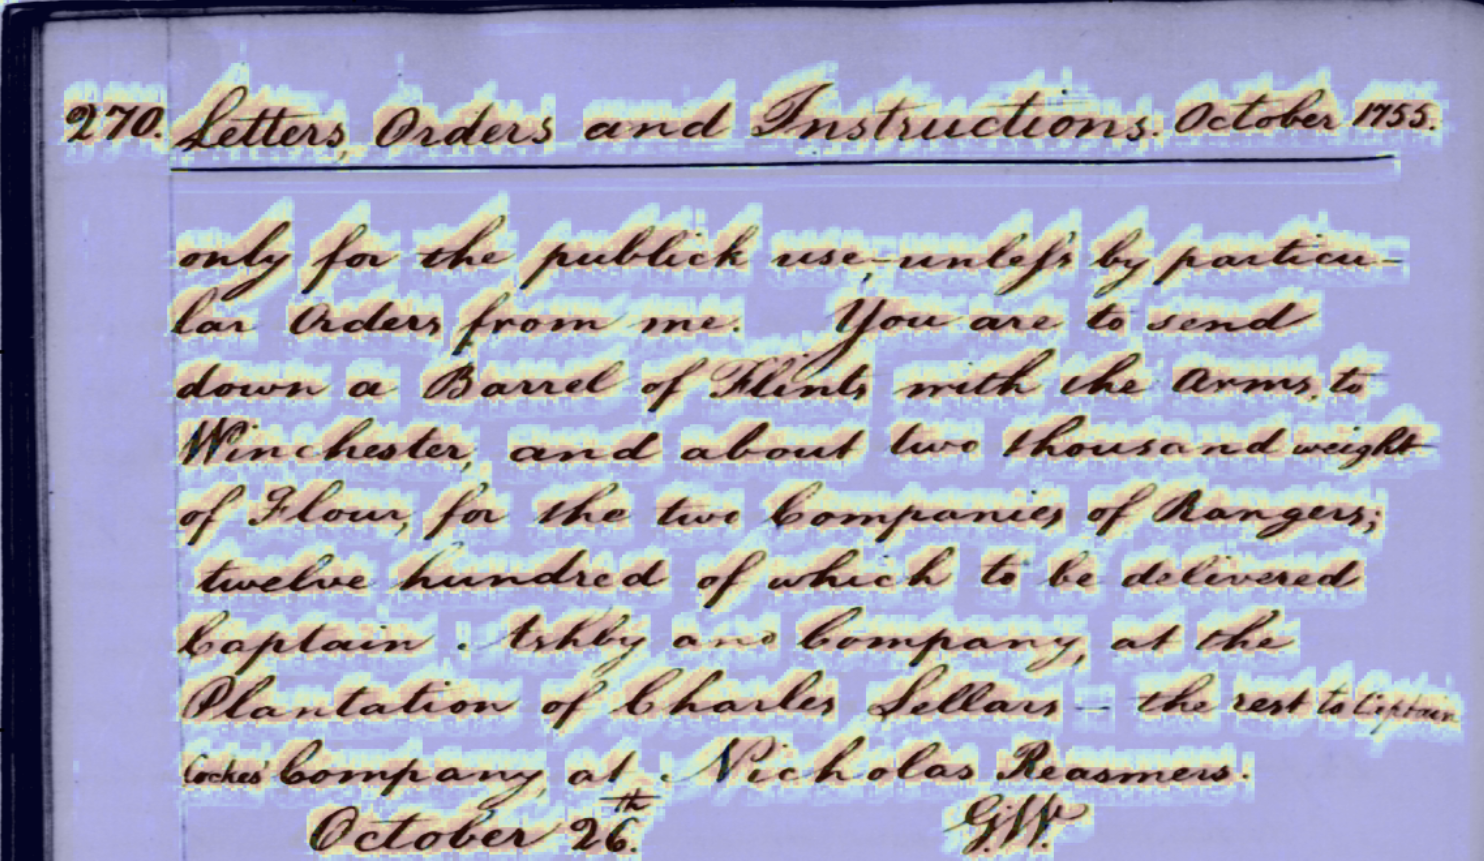 270. Letters, Orders and Instructions. October 1755.
only for the publick use,-unless by particu-
lar Orders from me. You are to send
down a Barrel of Flints with the Arms, to
Winchester, and about two thousand weight
of Flour, for the two Companies of Rangers;
twelve hundred of which to be delivered
Captain Ashby and Company, at the
Plantation of Charles Sellars - the rest to Captain
Cockes' Company, at Nicholas Reasmers.
October 26th. G.W.